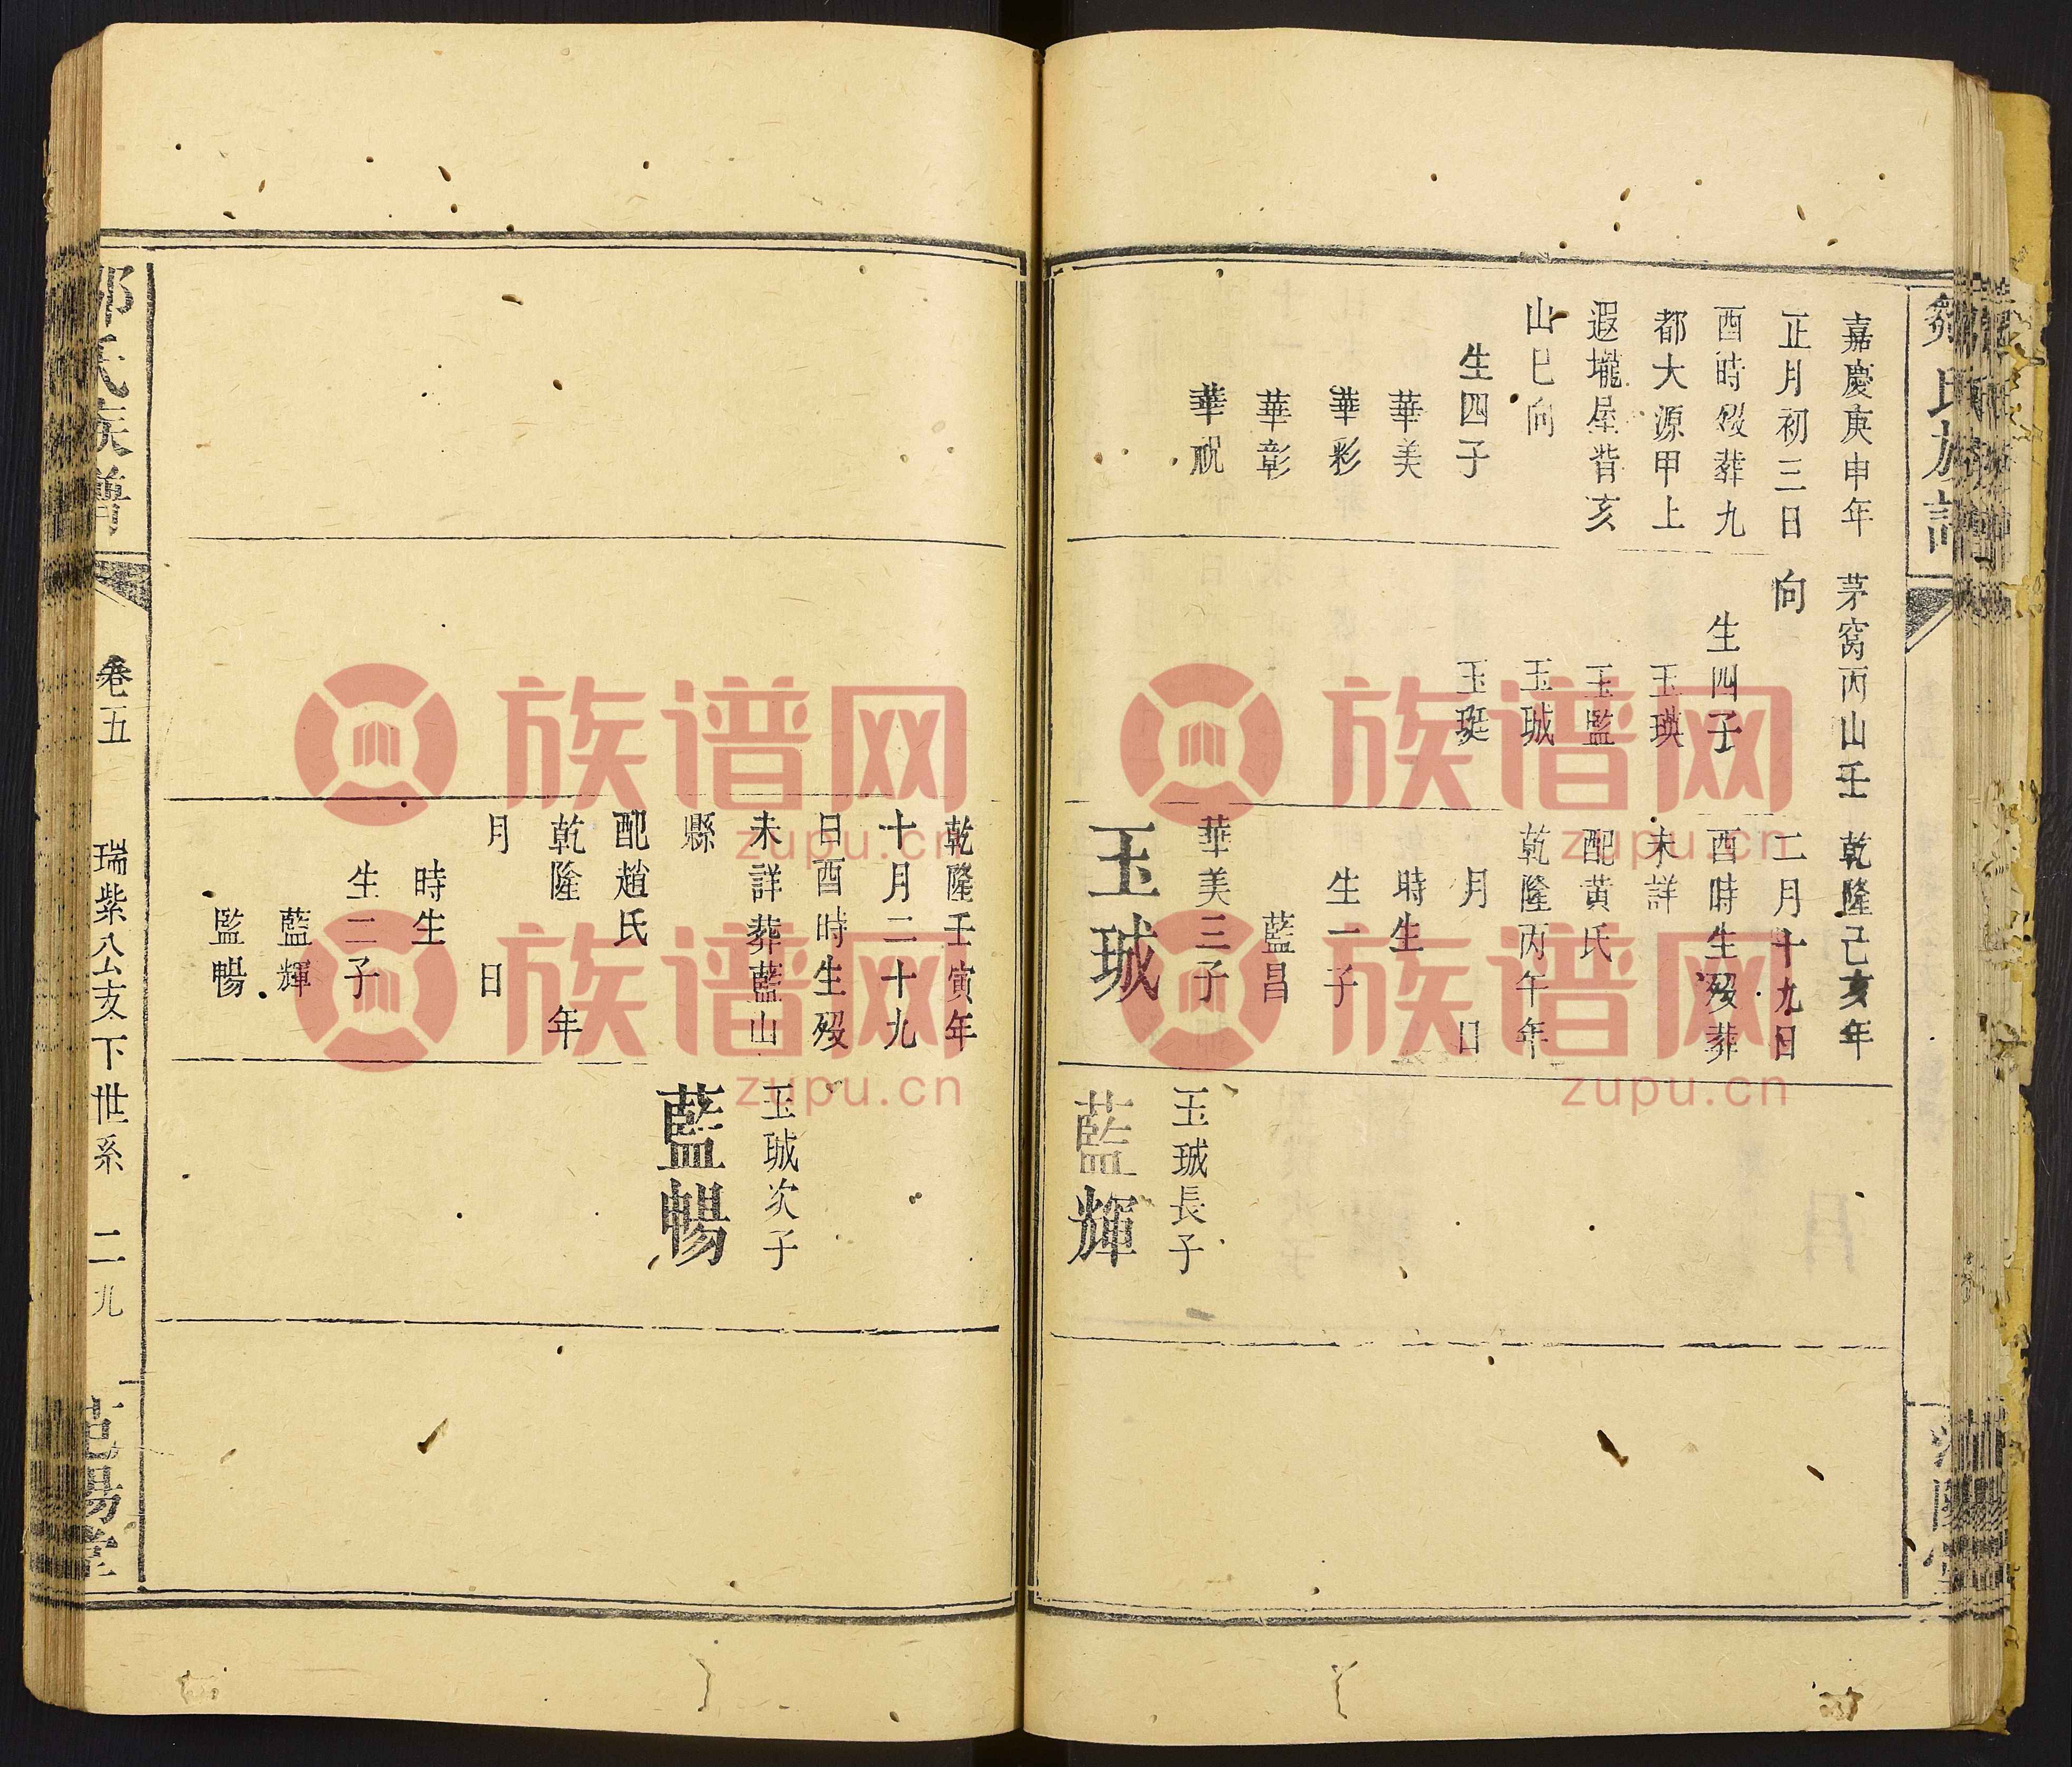 嘉慶庚申年
正月初三日
酉時歿葬九
都大源甲上
遐壠屋背亥
山巳向
生四子
華美
華彩
華彰
華祝
茅窩丙山壬
向
生四子
玉瑛
玉監
玉珹
玉珽
乾隆己亥年
二月十九日
酉時生歿葬
未詳
配黃氏
乾隆丙午年
月 日
時生
生一子
藍昌
華美三子
玉珹
玉珹長子
藍輝
乾隆壬寅年
十月二十九
日酉時生歿
未詳葬藍山
縣
配趙氏
乾隆 年
月 日
時生
生二子
藍輝
監暢
玉珹次子
藍暢
氏族譜
卷五
瑞紫公支下世系
二九
族谱网
zupu.cn
族谱网
zupu.cn
族谱网
zupu.cn
族谱网
zupu.cn